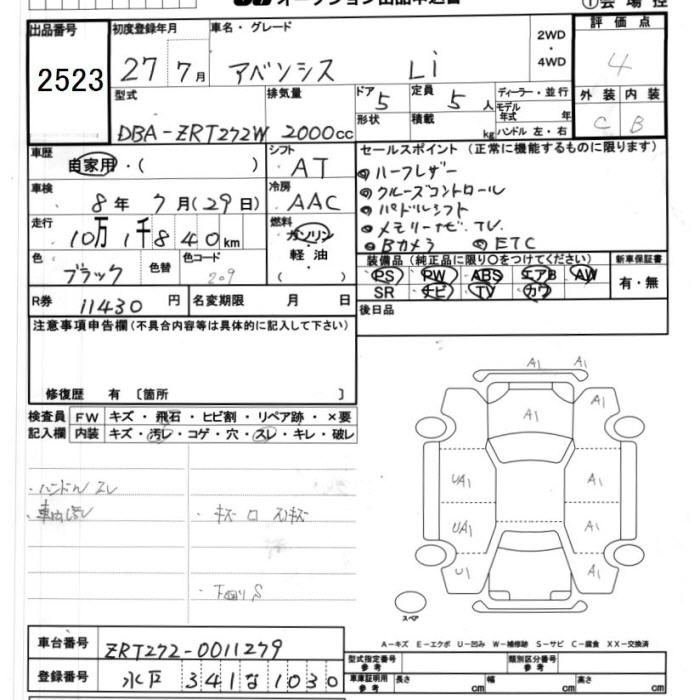 出品番号
2523
初度登録年月
27 7月
車名・グレード
アベンシス Li
2WD
・
4WD
評価点
4
型式
DBA-ZRT272W
排気量
2000cc
ドア
5
定員
5人
形状
積載
kg
ディーラー・並行
モデル年式 年
ハンドル 左・右
外装 内装
C B
車歴
自家用・( )
シフト
AT
車検
8年 7月(29日)
冷房
AAC
走行
10万1千840km
燃料
ガソリン
軽油
( )
色
ブラック
色替
色コード
209
R券
11430円
名変期限 月 日
セールスポイント(正常に機能するものに限ります)
ハーフレザー
クルーズコントロール
パドルシフト
メモリーナビ.TV.
Bカメラ ETC
装備品(純正品に限り○をつけてください)
PS PW ABS エアB AW
SR ナビ TV カワ
新車保証書
有・無
後日品
注意事項申告欄(不具合内容等は具体的に記入して下さい)
修復歴 有〔箇所 〕
検査員記入欄
FW キズ・飛石・ヒビ割・リペア跡・×要
内装 キズ・汚レ・コゲ・穴・スレ・キレ・破レ
・ハンドルスレ
・下回りS
A1 A1
A1 A1
UA1 A1
UA1 A1
U1 A1
スペア
A-キズ E-エクボ U-凹み W-補修跡 S-サビ C-腐食 XX-交換済
車台番号
ZRT272-0011279
登録番号
水戸 341 な 1030
型式指定番号 参考
類別区分番号 参考
車庫証明用 参考
長さ cm 幅 cm 高さ cm